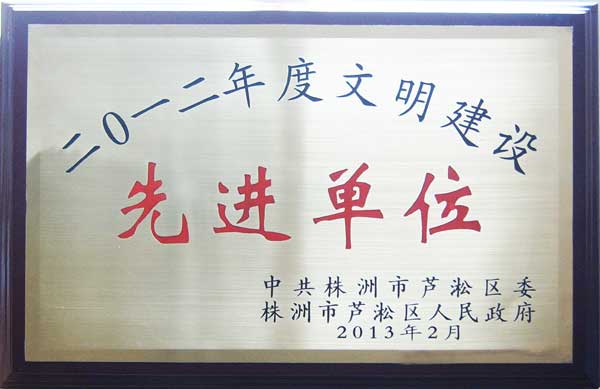 二0一二年度文明建设
先进单位
中共株洲市芦淞区委
株洲市芦淞区人民政府
2013年2月